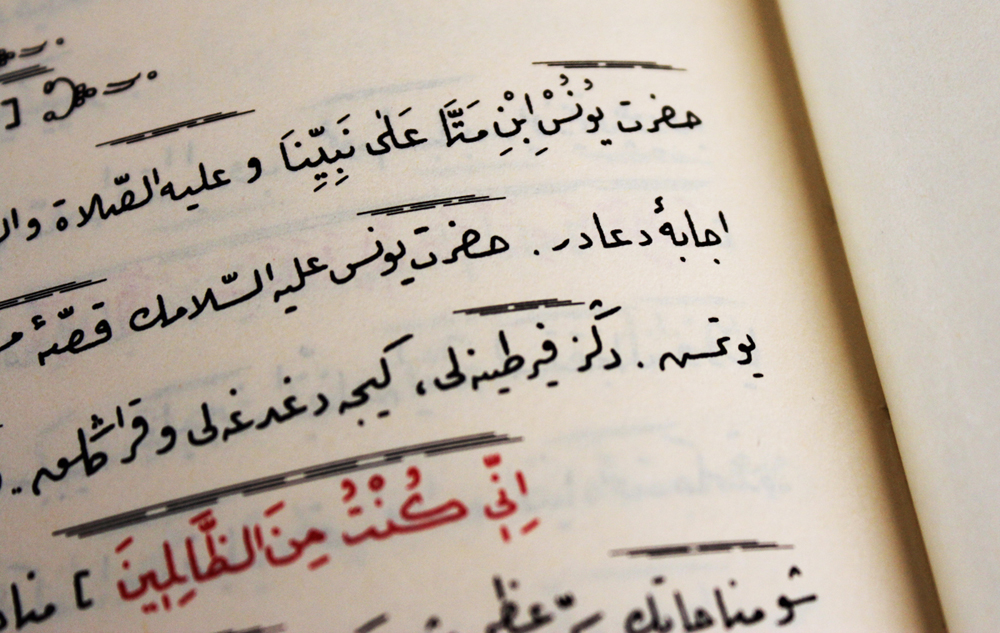 حضرت يُونُسْ ابْنِ مَتَّا عَلٰى نَبِيِّنَا و عليه الصّلاة وال
اجابهٔ دعادر . حضرت يونس عليه السّلامك قصّهٔ
يوتمش . دڭز فيرطينه لى ، كيجه دغدغه لى و قراڭلق
اِنِّى كُنْتُ مِنَ الظَّالِمِينَ ] منا
شو مناجاتك سرّ عظيم